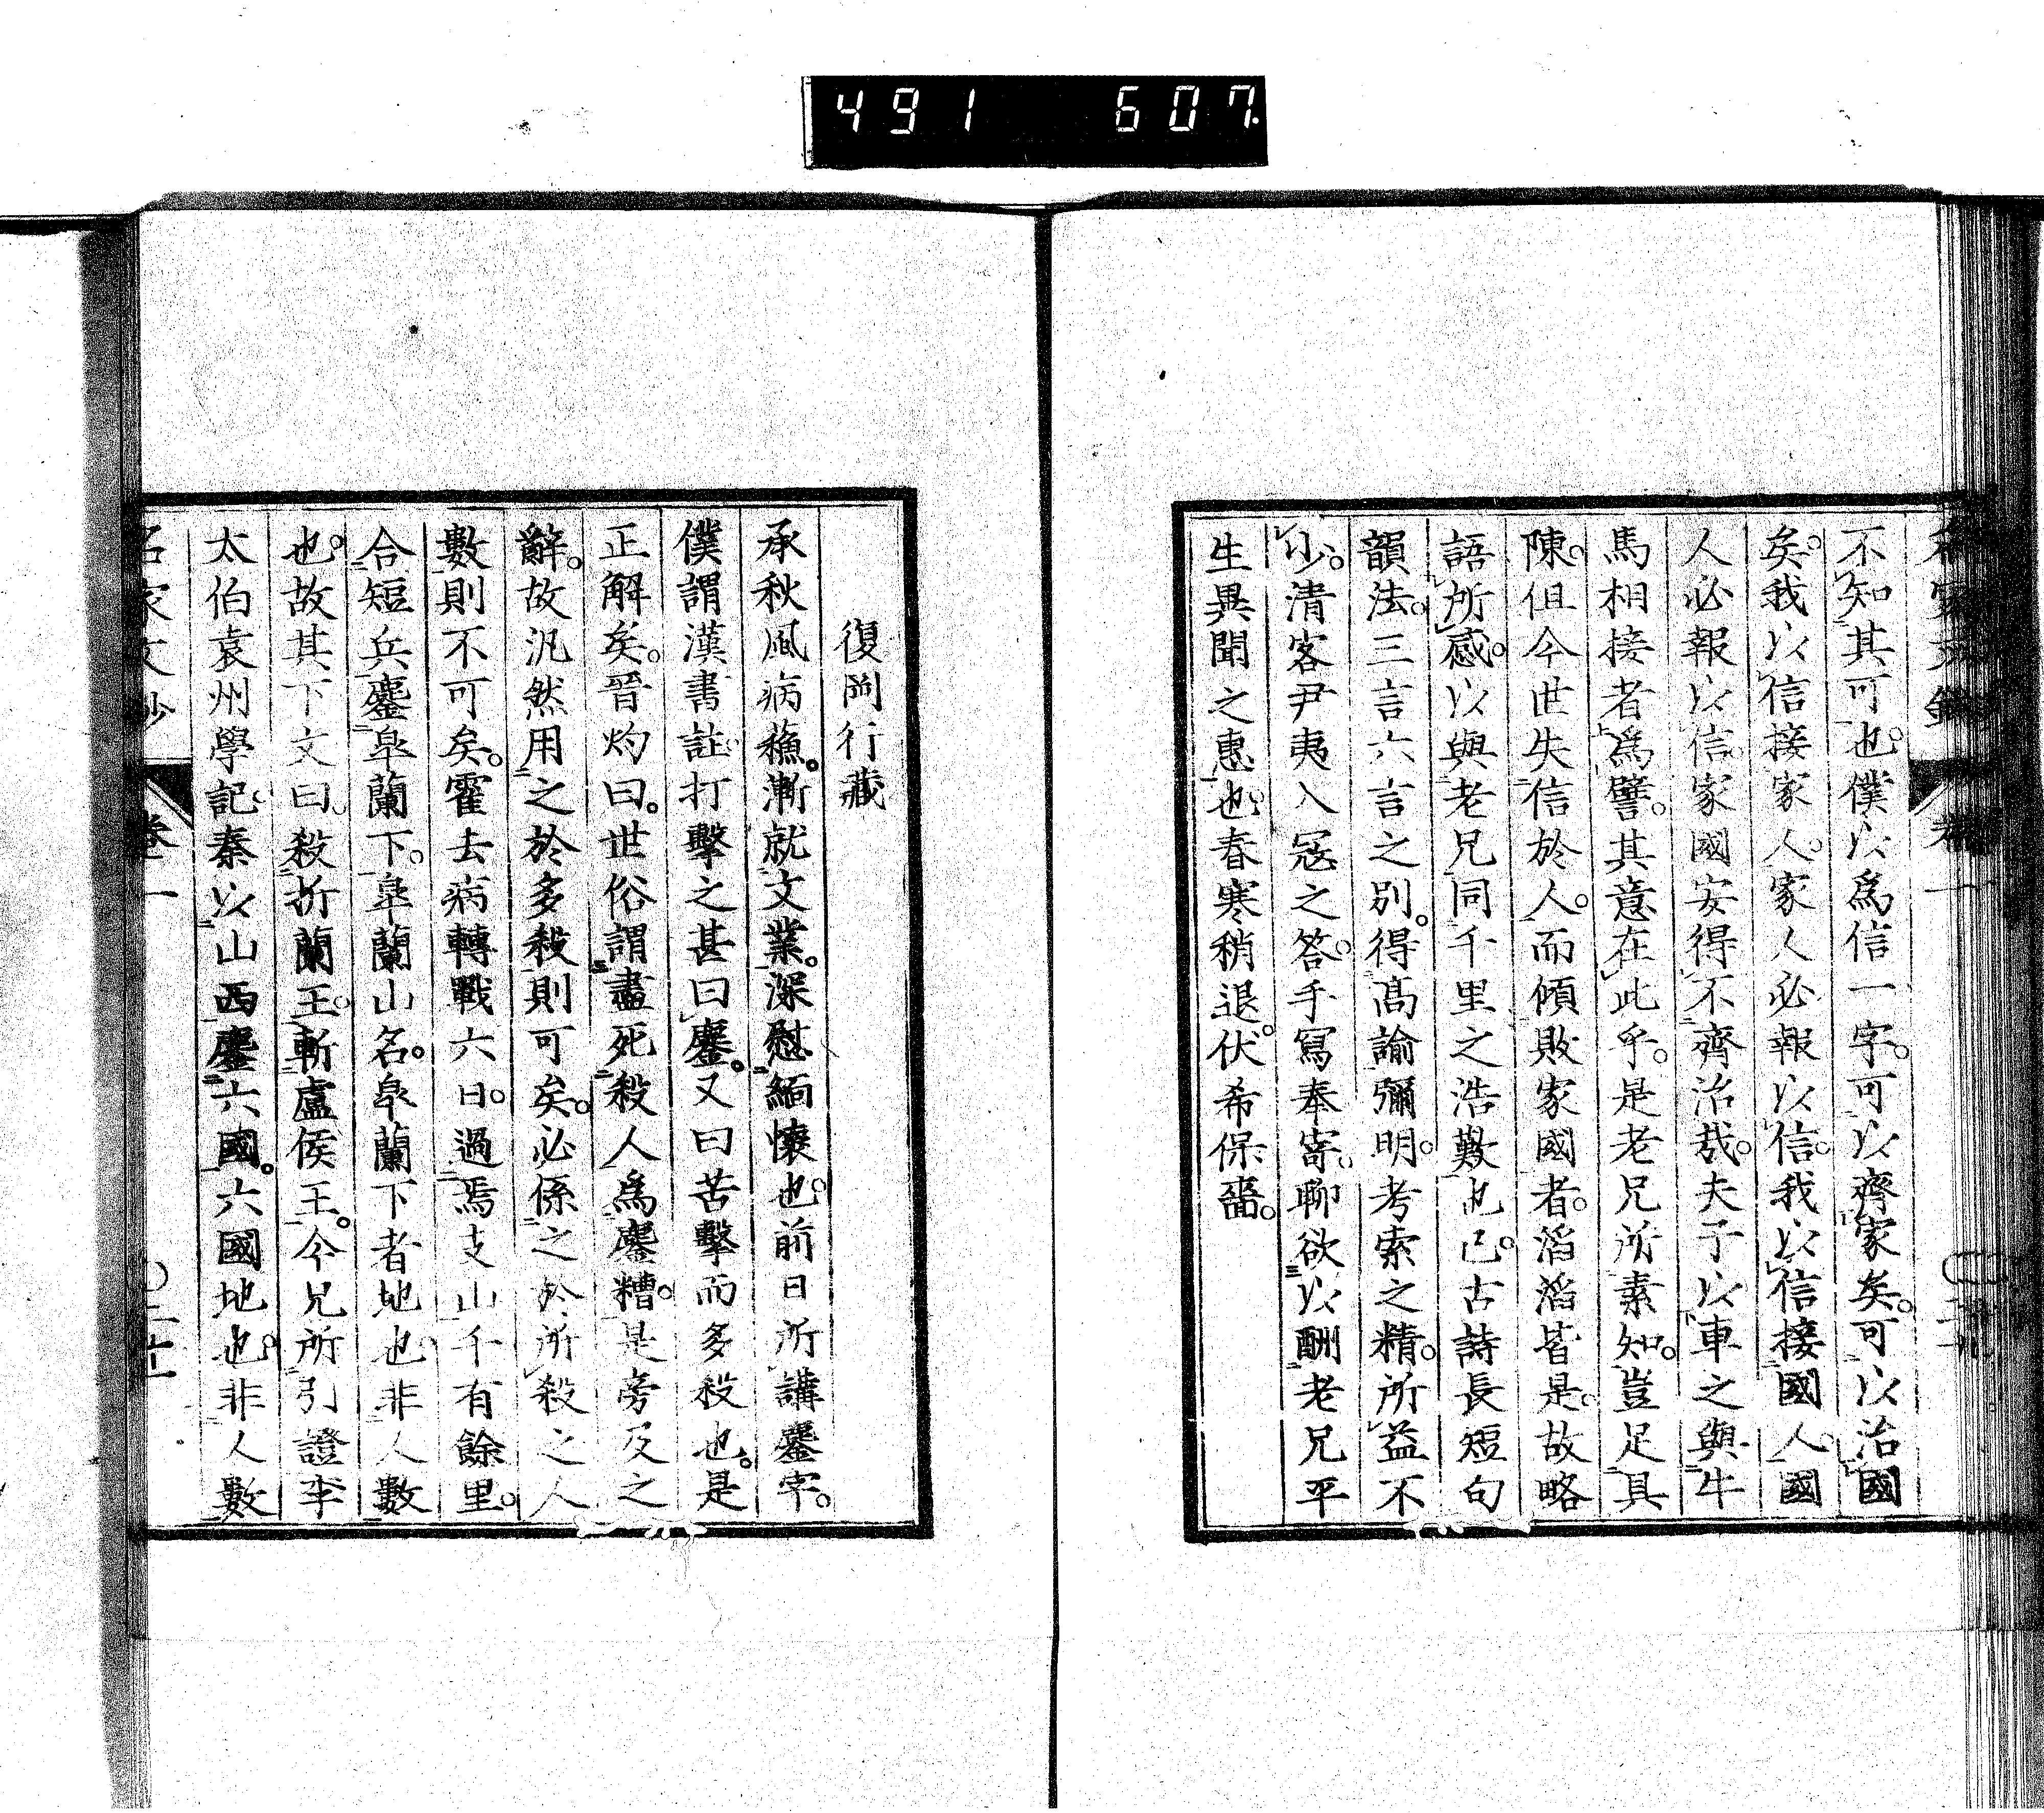 491 607.
不知其可也。僕以爲信一字。可以齊家矣。可以治國
矣。我以信接家人。家人必報以信。我以信接國人。國
人必報以信。家國安得不齊治哉。夫子以車之與牛
馬相接者爲譬。其意在此乎。是老兄所素知。豈足具
陳。但今世失信於人。而傾敗家國者。滔滔皆是。故略
語所感。以與老兄同千里之浩歎也已。古詩長短句
韻法。三言六言之別。得高諭彌明。考索之精。所益不
少。清客尹夷入寇之答。手寫奉寄。聊欲以酬老兄平
生異聞之惠也。春寒稍退。伏希保嗇。
復岡行藏
承秋風病穐。漸就文業。深慰緬懷也。前日所講鏖字。
僕謂漢書註。打擊之甚曰鏖。又曰苦擊而多殺也。是
正解矣。晉灼曰。世俗謂盡死殺人爲鏖糟。是旁及之
辭。故汎然用之於多殺則可矣。必係之於所殺之人
數則不可矣。霍去病轉戰六日。過焉支山千有餘里。
合短兵鏖皐蘭下。皐蘭山名。皐蘭下者地也。非人數
也。故其下文曰。殺折蘭王。斬盧侯王。今兄所引證李
太伯袁州學記。秦以山西鏖六國。六國地也。非人數
名家文抄 卷一